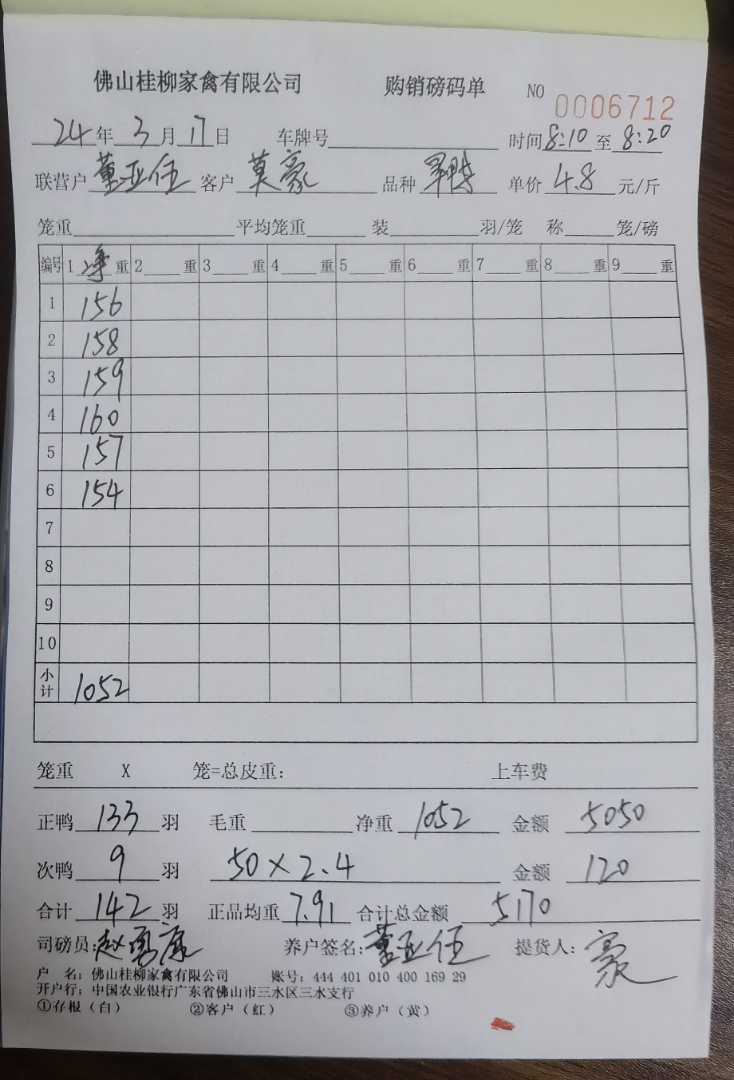 佛山桂柳家禽有限公司 购销磅码单 NO 0006712
24年3月17日 车牌号 时间8:10至8:20
联营户 董亚伍 客户 莫豪 品种 单价 4.8 元/斤
笼重 平均笼重 装 羽/笼 称 笼/磅
编号 1净重 2 重 3 重 4 重 5 重 6 重 7 重 8 重 9 重
1 156
2 158
3 159
4 160
5 157
6 154
7
8
9
10
小计 1052
笼重 X 笼=总皮重: 上车费
正鸭 133 羽 毛重 净重 1052 金额 5050
次鸭 9 羽 50×2.4 金额 120
合计 142 羽 正品均重 7.91 合计总金额 5170
司磅员:赵勇 养户签名:董亚伍 提货人:豪
户 名: 佛山桂柳家禽有限公司 账号: 444 401 010 400 169 29
开户行: 中国农业银行广东省佛山市三水区三水支行
①存根（白） ②客户（红） ③养户（黄）